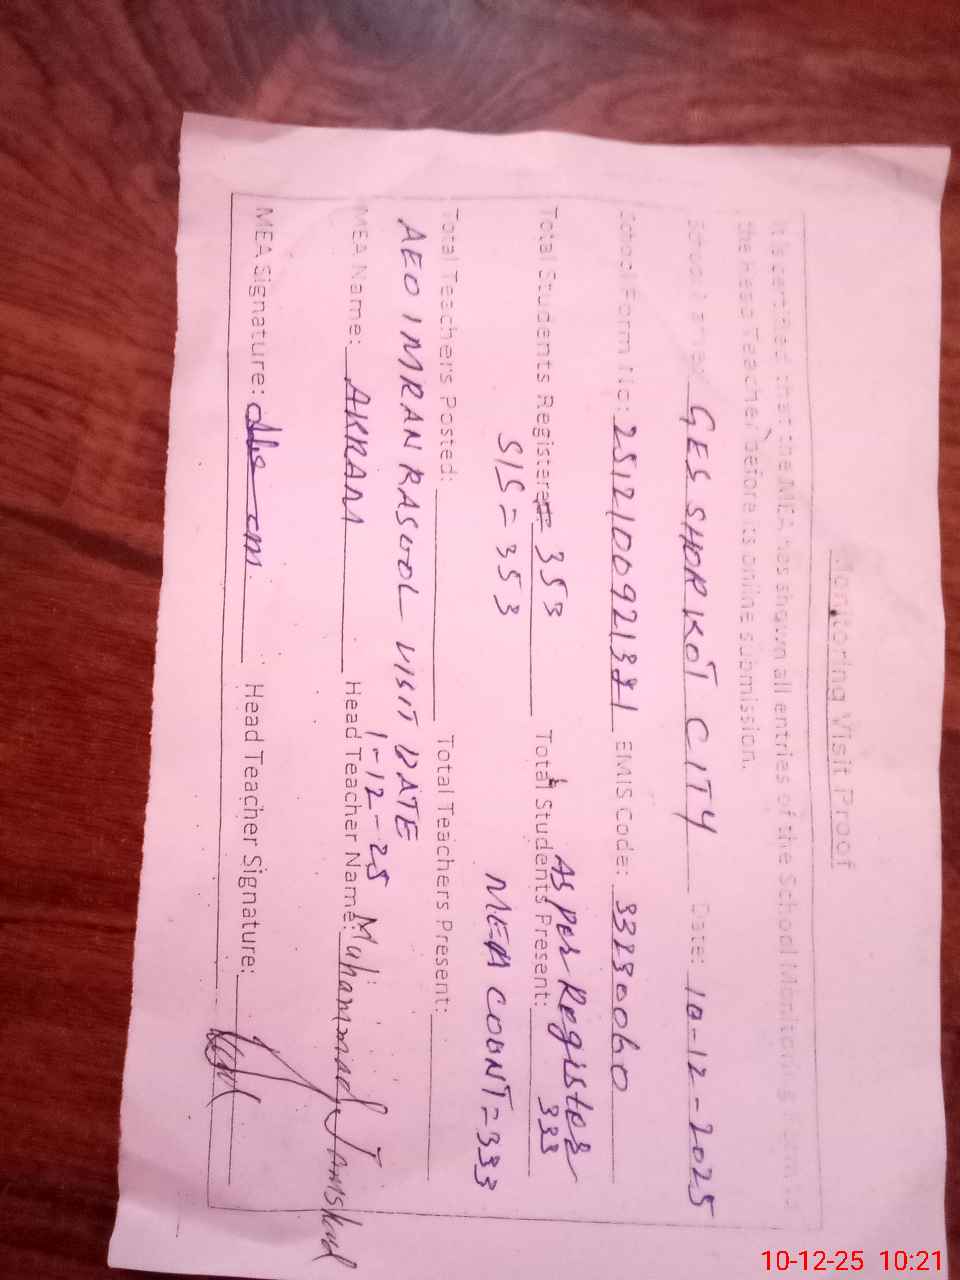 Monitoring Visit Proof
It is certified that the MEA has shown all entries of the School Monitoring
the Head Teacher before its online submission.
School Name: GES SHORKOT CITY Date: 10-12-2025
School Form No: EMIS Code: 33230060
As per Register
Total Students Registered: 353 Total Students Present: 333
SIS = 353 MEA COUNT = 333
Total Teachers Posted: Total Teachers Present:
AEO IMRAN RASOOL VISIT DATE
1-12-25
MEA Name: AKRAM Head Teacher Name: Muhammad Jamshad
MEA Signature: Head Teacher Signature:
10-12-25 10:21